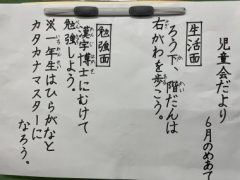 児童会だより
6月のめあて
生活面
ろう下、階だんは
右がわを歩こう。
勉強面
漢字博士にむけて
勉強しよう。
※一年生はひらがなと
カタカナマスターに
なろう。